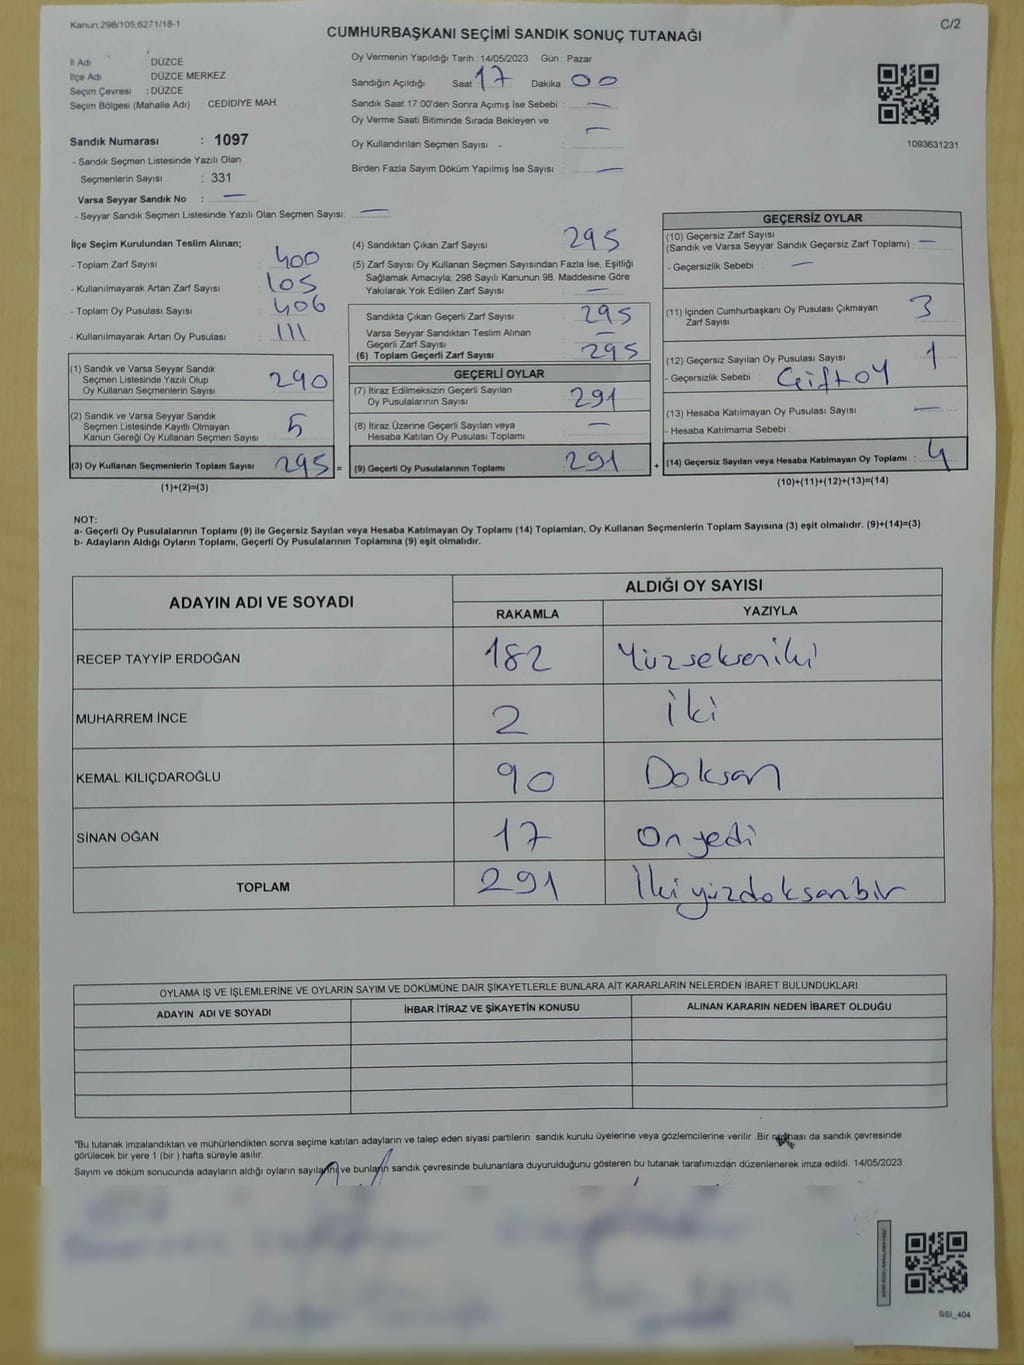 Kanun;298/105,6271/18-1
C/2
CUMHURBAŞKANI SEÇİMİ SANDIK SONUÇ TUTANAĞI
İl Adı : DÜZCE
İlçe Adı : DÜZCE MERKEZ
Seçim Çevresi : DÜZCE
Seçim Bölgesi (Mahalle Adı) CEDİDİYE MAH.
Sandık Numarası : 1097
- Sandık Seçmen Listesinde Yazılı Olan
Seçmenlerin Sayısı : 331
Varsa Seyyar Sandık No : —
- Seyyar Sandık Seçmen Listesinde Yazılı Olan Seçmen Sayısı: —
Oy Vermenin Yapıldığı Tarih :14/05/2023 Gün : Pazar
Sandığın Açıldığı Saat 17 Dakika 00
Sandık Saat 17:00'den Sonra Açımış İse Sebebi : —
Oy Verme Saati Bitiminde Sırada Bekleyen ve
Oy Kullandırılan Seçmen Sayısı : —
Birden Fazla Sayım Döküm Yapılmış İse Sayısı : —
1093631231
İlçe Seçim Kurulundan Teslim Alınan;
- Toplam Zarf Sayısı : 400
- Kullanılmayarak Artan Zarf Sayısı : 105
- Toplam Oy Pusulası Sayısı : 406
- Kullanılmayarak Artan Oy Pusulası : 111
(1) Sandık ve Varsa Seyyar Sandık
Seçmen Listesinde Yazılı Olup
Oy Kullanan Seçmenlerin Sayısı : 290
(2) Sandık ve Varsa Seyyar Sandık
Seçmen Listesinde Kayıtlı Olmayan
Kanun Gereği Oy Kullanan Seçmen Sayısı : 5
(3) Oy Kullanan Seçmenlerin Toplam Sayısı : 295 =
(1)+(2)=(3)
(4) Sandıktan Çıkan Zarf Sayısı : 295
(5) Zarf Sayısı Oy Kullanan Seçmen Sayısından Fazla İse, Eşitliği
Sağlamak Amacıyla; 298 Sayılı Kanunun 98. Maddesine Göre
Yakılarak Yok Edilen Zarf Sayısı : —
Sandıkta Çıkan Geçerli Zarf Sayısı : 295
Varsa Seyyar Sandıktan Teslim Alınan
Geçerli Zarf Sayısı : —
(6) Toplam Geçerli Zarf Sayısı : 295
GEÇERLİ OYLAR
(7) İtiraz Edilmeksizin Geçerli Sayılan
Oy Pusulalarının Sayısı : 291
(8) İtiraz Üzerine Geçerli Sayılan veya
Hesaba Katılan Oy Pusulası Toplamı : —
(9) Geçerli Oy Pusulalarının Toplamı : 291 +
GEÇERSİZ OYLAR
(10) Geçersiz Zarf Sayısı
(Sandık ve Varsa Seyyar Sandık Geçersiz Zarf Toplamı) : —
- Geçersizlik Sebebi : —
(11) İçinden Cumhurbaşkanı Oy Pusulası Çıkmayan
Zarf Sayısı : 3
(12) Geçersiz Sayılan Oy Pusulası Sayısı : 1
- Geçersizlik Sebebi : Çift Oy
(13) Hesaba Katılmayan Oy Pusulası Sayısı : —
- Hesaba Katılmama Sebebi :
(14) Geçersiz Sayılan veya Hesaba Katılmayan Oy Toplamı : 4
(10)+(11)+(12)+(13)=(14)
NOT:
a- Geçerli Oy Pusulalarının Toplamı (9) ile Geçersiz Sayılan veya Hesaba Katılmayan Oy Toplamı (14) Toplamları, Oy Kullanan Seçmenlerin Toplam Sayısına (3) eşit olmalıdır. (9)+(14)=(3)
b- Adayların Aldığı Oyların Toplamı, Geçerli Oy Pusulalarının Toplamına (9) eşit olmalıdır.
ADAYIN ADI VE SOYADI
ALDIĞI OY SAYISI
RAKAMLA YAZIYLA
RECEP TAYYİP ERDOĞAN 182 Yüzsekseniki
MUHARREM İNCE 2 İki
KEMAL KILIÇDAROĞLU 90 Doksan
SİNAN OĞAN 17 Onyedi
TOPLAM 291 İkiyüzdoksanbir
OYLAMA İŞ VE İŞLEMLERİNE VE OYLARIN SAYIM VE DÖKÜMÜNE DAİR ŞİKAYETLERLE BUNLARA AİT KARARLARIN NELERDEN İBARET BULUNDUKLARI
ADAYIN ADI VE SOYADI İHBAR İTİRAZ VE ŞİKAYETİN KONUSU ALINAN KARARIN NEDEN İBARET OLDUĞU
*Bu tutanak imzalandıktan ve mühürlendikten sonra seçime katılan adayların ve talep eden siyasi partilerin sandık kurulu üyelerine veya gözlemcilerine verilir. Bir nüshası da sandık çevresinde
görülecek bir yere 1 (bir) hafta süreyle asılır.
Sayım ve döküm sonucunda adayların aldığı oyların sayılarını ve bunların sandık çevresinde bulunanlara duyurulduğunu gösteren bu tutanak tarafımızdan düzenlenerek imza edildi. 14/05/2023
SSI_404